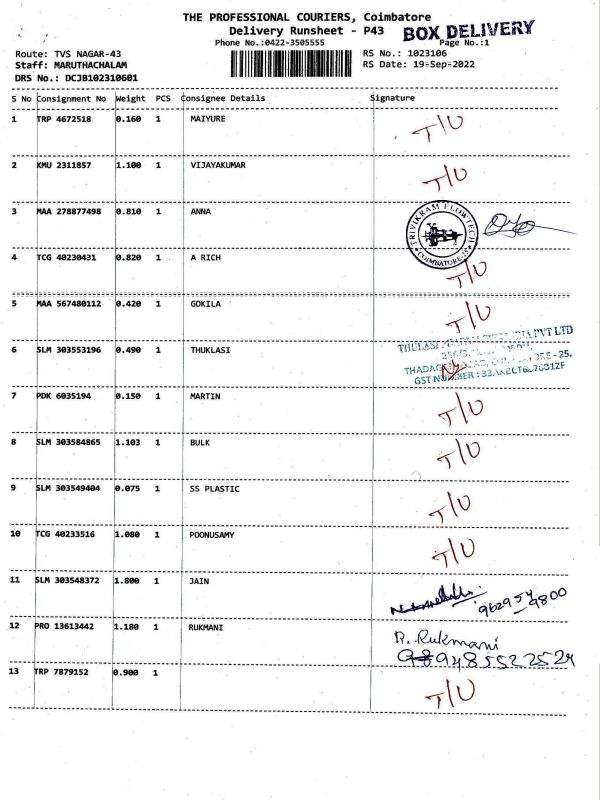 THE PROFESSIONAL COURIERS, Coimbatore
Delivery Runsheet - P43 BOX DELIVERY
Phone No.:0422-3505555 Page No.:1
Route: TVS NAGAR-43 RS No.: 1023106
Staff: MARUTHACHALAM RS Date: 19-Sep-2022
DRS No.: DCJB102310601
S No Consignment No Weight PCS Consignee Details Signature
1 TRP 4672518 0.160 1 MAIYURE T/U
2 KMU 2311857 1.100 1 VIJAYAKUMAR T/U
3 MAA 278877498 0.810 1 ANNA TRIVIKRAM FLOWTECH COIMBATORE
4 TCG 40230431 0.820 1 A RICH T/U
5 MAA 567480112 0.420 1 GOKILA T/U
THULASI PVT LTD
6 SLM 303553196 0.490 1 THUKLASI
- 25.
GST NUMBER :
7 PDK 6035194 0.150 1 MARTIN T/U
8 SLM 303584865 1.103 1 BULK T/U
9 SLM 303549404 0.075 1 SS PLASTIC T/U
10 TCG 40233516 1.080 1 POONUSAMY T/U
11 SLM 303548372 1.800 1 JAIN 9629549800
12 PRO 13613442 1.180 1 RUKMANI R. Rukmani
13 TRP 7879152 0.900 1 T/U